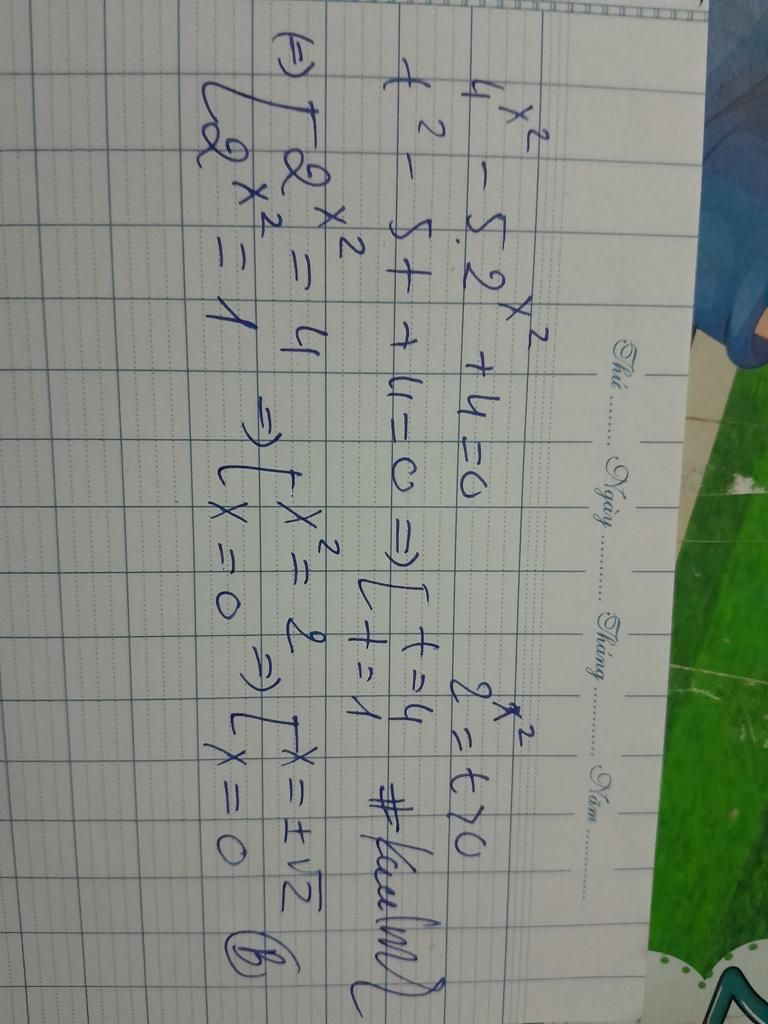 Thứ ........ Ngày ............ Tháng ............ Năm ............
4^{x^2} - 5.2^{x^2} + 4 = 0      2^{x^2} = t > 0
t^2 - 5t + 4 = 0 => [ t = 4
[ t = 1
(=) [ 2^{x^2} = 4 => [ x^2 = 2 => [ x = ±√2
[ 2^{x^2} = 1 [ x = 0 [ x = 0 (b)